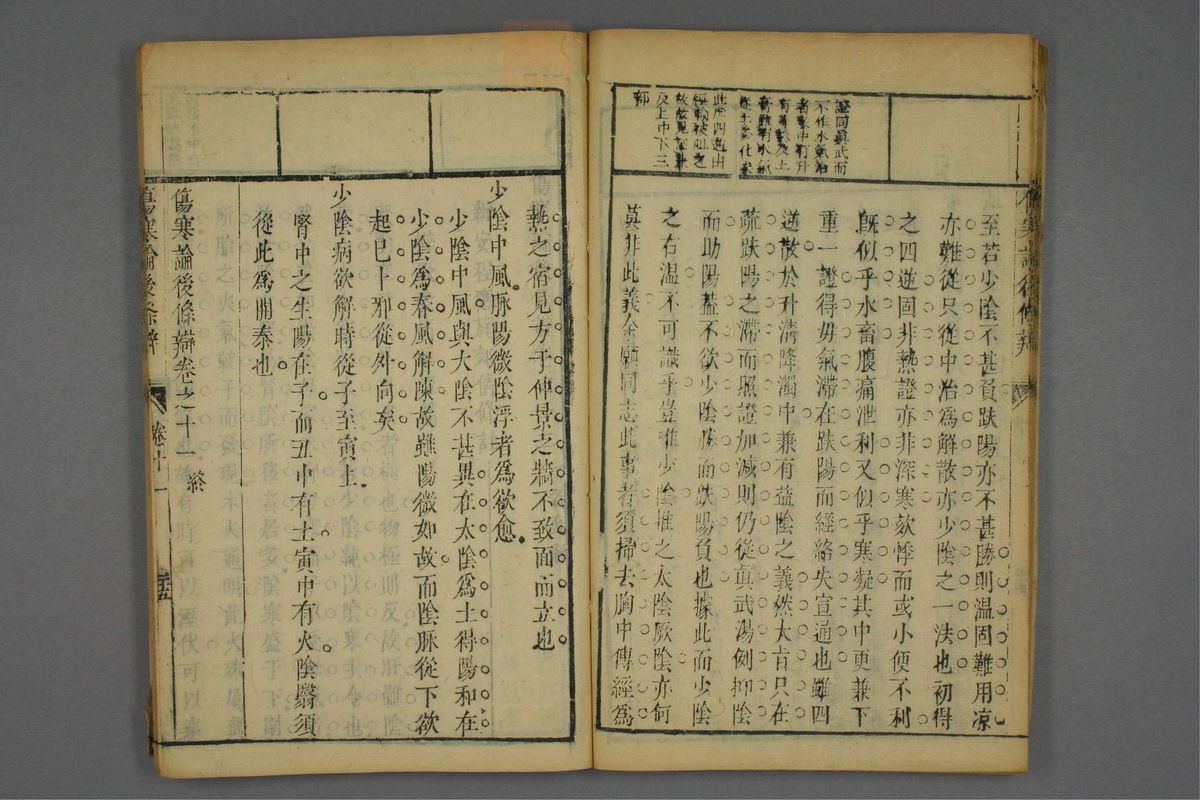 證同眞武而
不作水氣治
者以中有升
此證四逆由
反上中下三
部
至若少陰不甚負趺陽亦不甚勝則温固難用凉
亦難從只從中治爲解散亦少陰之一法也初得
之四逆固非熱證亦非深寒欬悸而或小便不利
旣似乎水畜腹痛泄利又似乎寒凝其中更兼下
重一證得毋氣滯在趺陽而經絡失宣通也雖四
逆散於升淸降濁中兼有益陰之義然大旨只在
疏趺陽之滯而照證加減則仍從眞武湯例抑陰
而助陽蓋不欲少陰勝而趺陽負也據此而少陰
之右温不可識乎豈唯少陰推之太陰厥陰亦何
莫非此義余願同志此事者須掃去胸中傳經爲
熱之宿見方于仲景之牆不致面而立也
少陰中風脉陽微陰浮者爲欲愈
少陰中風與大陰不甚異在太陰爲土得陽和在
少陰爲春風解陳故雖陽微如故而陰脉從下欲
起已十邪從外向矣
少陰病欲解時從子至寅上
腎中之生陽在子而丑中有土寅中有火陰翳須
從此爲開泰也
傷寒論後條辯卷之十一 終
傷寒論後條辯 卷十一